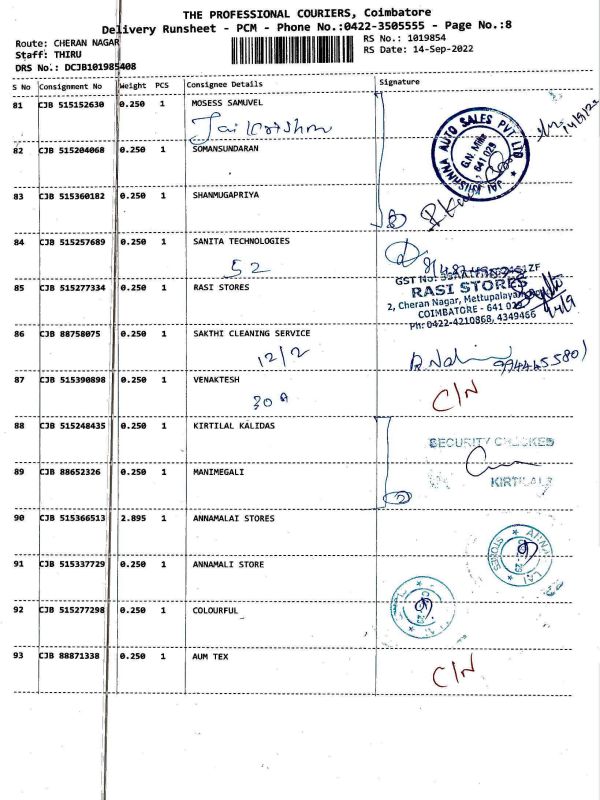 THE PROFESSIONAL COURIERS, Coimbatore
Delivery Runsheet - PCM - Phone No.:0422-3505555 - Page No.:8
Route: CHERAN NAGAR
RS No.: 1019854
Staff: THIRU
RS Date: 14-Sep-2022
DRS No.: DCJB101985408
S No Consignment No Weight PCS Consignee Details Signature
81 CJB 515152630 0.250 1 MOSESS SAMUVEL
Jai Krishna
JAI KRISHNNA AUTO SALES PVT LTD
G.N. Mills
641 029
14/9/22
82 CJB 515204068 0.250 1 SOMANSUNDARAN
83 CJB 515360182 0.250 1 SHANMUGAPRIYA
84 CJB 515257689 0.250 1 SANITA TECHNOLOGIES
52
85 CJB 515277334 0.250 1 RASI STORES
GST No:
RASI STORES
2, Cheran Nagar, Mettupalayam
COIMBATORE - 641 029
Ph: 0422-4210868, 4349466
86 CJB 88758075 0.250 1 SAKTHI CLEANING SERVICE
12/2
9944455801
87 CJB 515390898 0.250 1 VENAKTESH
30A
C/N
88 CJB 515248435 0.250 1 KIRTILAL KALIDAS
SECURITY CHECKED
89 CJB 88652326 0.250 1 MANIMEGALI
KIRTILALS
2
90 CJB 515366513 2.895 1 ANNAMALAI STORES
91 CJB 515337729 0.250 1 ANNAMALI STORE
92 CJB 515277298 0.250 1 COLOURFUL
93 CJB 88871338 0.250 1 AUM TEX
C/N